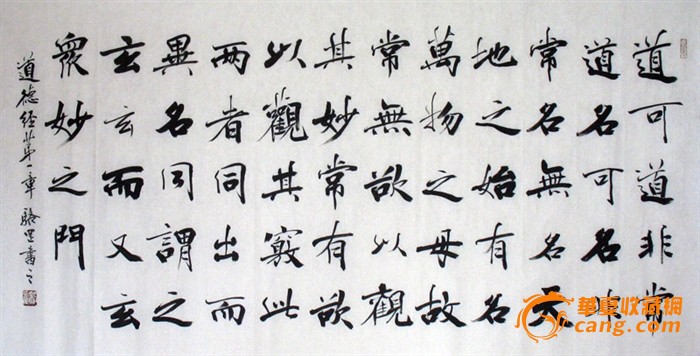 道可道非常
道名可名非
常名無名天
地之始有名
萬物之母故
常無欲以觀
其妙常有欲
以觀其竅此
两者同出而
異名同謂之
玄玄而又玄
衆妙之門
道德经第一章 書之
華夏收藏網
cang.com